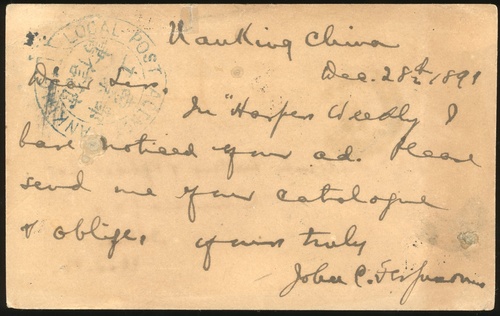 LOCAL POST
Nanking China
Dec. 28th/1897
Dear Sirs.
In "Harpers Weekly" I
have noticed your ad. Please
send me your catalogue
& oblige,   yours truly
John C. Ferguson